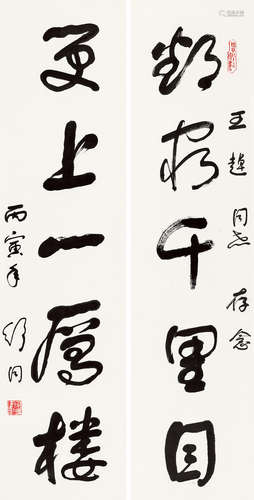 王同志存念
欲窮千里目
更上一層楼
丙寅年 舒同